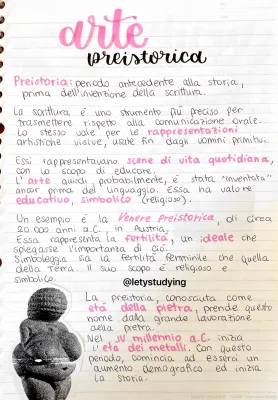 arte
preistorica
Preistoria: periodo antecedente alla storia,
prima dell'invenzione della scrittura.
La scrittura è uno strumento più preciso per
trasmettere rispetto alla comunicazione orale.
Lo stesso vale per le rappresentazioni
artistiche visive, usate fin dagli uomini primitivi.
Essi rappresentavano scene di vita quotidiana,
con lo scopo di educare.
L'arte quindi probabilmente, è stata "inventata"
ancor prima del linguaggio. Essa ha valore
educativo, simbolico (religioso).
Un esempio è la Venere Preistorica, di circa
20.000 anni a.C., in Austria.
Essa rappresenta la fertilità, un ideale che
spiegasse l'importanza di ciò.
Simboleggia sia la fertilità femminile che quella
della Terra. Il suo scopo è religioso e
simbolico.
@letystudying
La preistoria, conosciuta come
età della pietra, prende questo
nome dalla grande lavorazione
della pietra.
Nel IV millennio a.C. inizia
l'età dei metalli. Con questo
periodo, comincia ad esserci un
aumento demografico ed inizia
la storia.